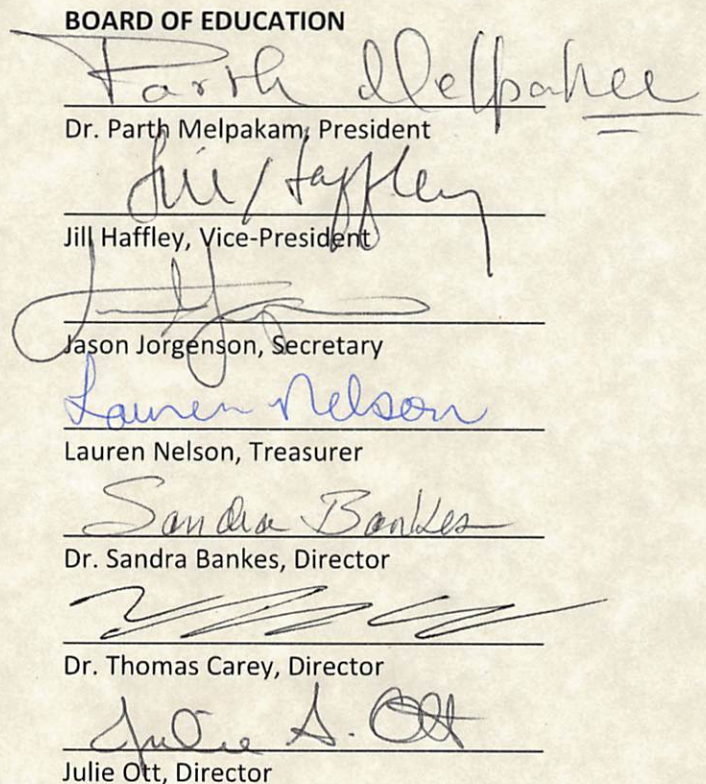 BOARD OF EDUCATION
Parth Melpakam
Dr. Parth Melpakam, President
Jill Haffley
Jill Haffley, Vice-President
Jason Jorgenson, Secretary
Lauren Nelson
Lauren Nelson, Treasurer
Sandra Bankes
Dr. Sandra Bankes, Director
Dr. Thomas Carey, Director
Julie A. Ott
Julie Ott, Director